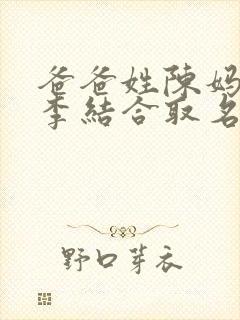 爸爸姓陳媽
李結合取名
野口芽衣